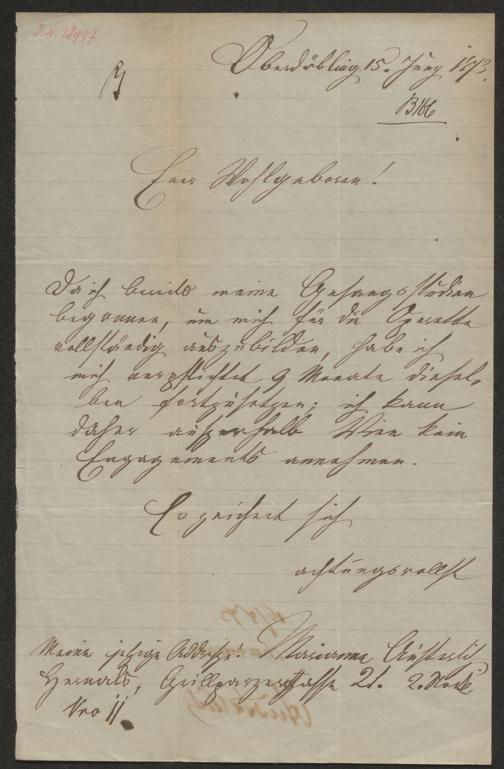 I.N. 18997
Oberdöbling 15. Juny 187
Euer Wohlgeboren!
Da ich bereits meine Gesangsstudien
begonnen, um mich für die Operette
vollständig auszubilden, habe ich
mich verpflichtet, 9 Monate diesel-
ben fortzusetzen; ich kann
daher außerhalb Wien kein
Engagements annehmen.
Es zeichnet sich
achtungsvollst
Meine jetzige Addresse: Marianne
Hernals, Grillparzergasse 21. 2. Stock
Nro 11